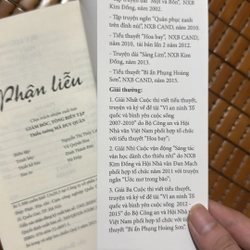 Phận liễu
Chịu trách nhiệm xuất bản
GIÁM ĐỐC, TỔNG BIÊN TẬP
Kim Đồng, năm 2002.
- Tập truyện ngắn "Quân phục xanh
trên đỉnh núi", NXB CAND, năm 2015.
- Tiểu thuyết "Hoa bay", NXB CAND,
năm 2016, tái bản lần 2 năm 2012.
- Truyện dài "Sáng Lim", NXB Kim
Đồng, năm 2013.
- Tiểu thuyết "Bí ẩn Phụng Hoàng
Sơn", NXB CAND, năm 2015.
Giải thưởng:
1. Giải Nhất Cuộc thi viết tiểu thuyết,
truyện và ký về đề tài "Vì an ninh Tổ
quốc và bình yên cuộc sống
2007-2010" do Bộ Công an và Hội
Nhà văn Việt Nam phối hợp tổ chức
với tiểu thuyết "Hoa bay";
2. Giải Nhì Cuộc vận động "Sáng tác
văn học dành cho thiếu nhi" do NXB
Kim Đồng và Hội Nhà văn Đan Mạch
phối hợp tổ chức năm 2011 với truyện
ngắn "Ước mơ trong bão";
3. Giải B Cuộc thi viết tiểu thuyết,
truyện và ký về đề tài "Vì an ninh Tổ
quốc và bình yên cuộc sống 2012 -
2015" do Bộ Công an và Hội Nhà văn
Việt Nam phối hợp tổ chức với tiểu
thuyết "Bí ẩn Phụng Hoàng Sơn".